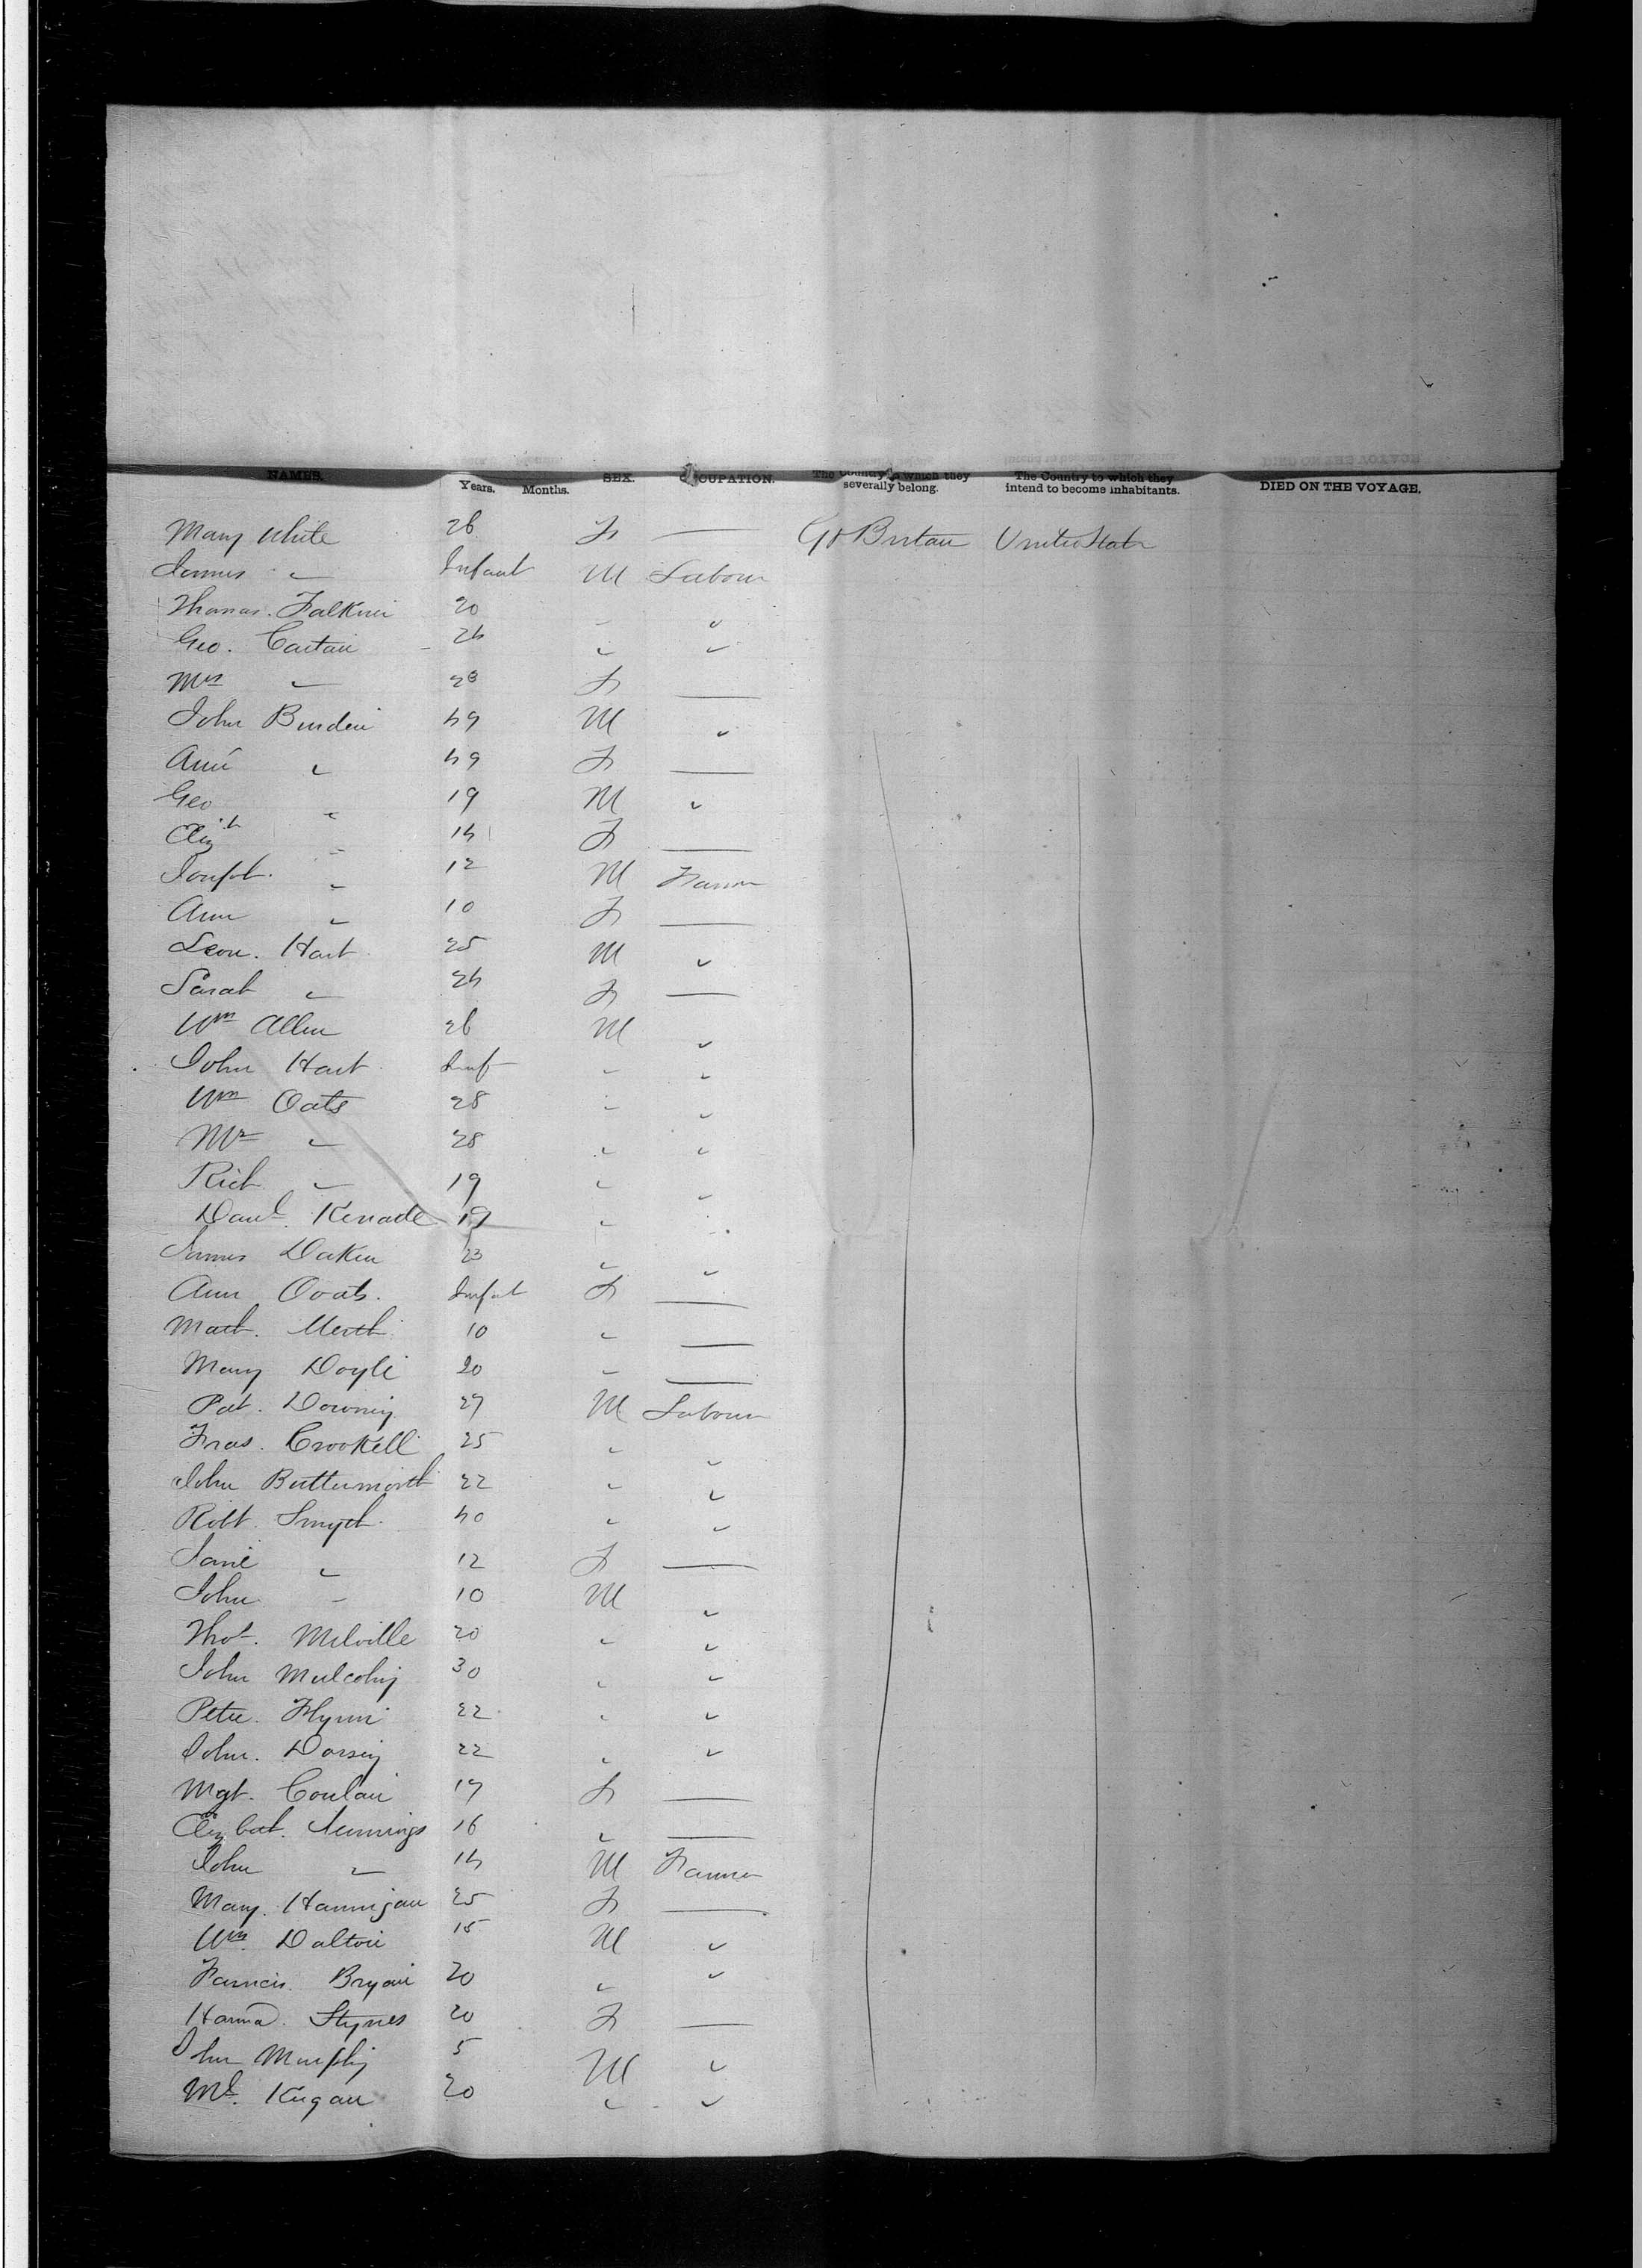 NAMES. Years. Months. SEX. OCCUPATION. The Country to which they severally belong. The Country to which they intend to become inhabitants. DIED ON THE VOYAGE.
Mary White 26 F — Gt Britain United States
James " Infant M Labour
Thomas. Falkner 20 " "
Geo. Cartain 24 " "
Mrs " 28 F —
John Burden 49 M "
Ann " 49 F —
Geo " 19 M "
Elizth " 14 F —
Joseph. " 12 M Farmer
Ann " 10 F —
Leon. Hart 25 M "
Sarah " 24 F —
Wm Allen 26 M "
John Hart Inft " "
Wm Oats 28 " "
Mr " 28 " "
Rich " 19 " "
Danl. 19 "
James Daken 23 " "
Ann Ooats. Infant F —
Math. 10 " —
Mary Doyle 20 " —
Pat. Downey 27 M Labour
Fras. Crookell 25 " "
John Butterworth 22 " "
Robt. Smyth. 40 " "
Jane " 12 F —
John " 10 M "
Thos. Melville 20 " "
John Mulcahy 30 " "
Peter. Flynn 22 " "
John. Dorsey 22 " "
Mgt. Conlan 17 F —
Elizbat. Jennings 16 " —
John " 14 M Farmer
Mary. Hannigan 25 F —
Wm. Dalton 15 M "
Francis. Bryan 20 " "
Hanna. Stynes 20 F —
John Murphy 5 M "
Ml. Keegan 20 " "